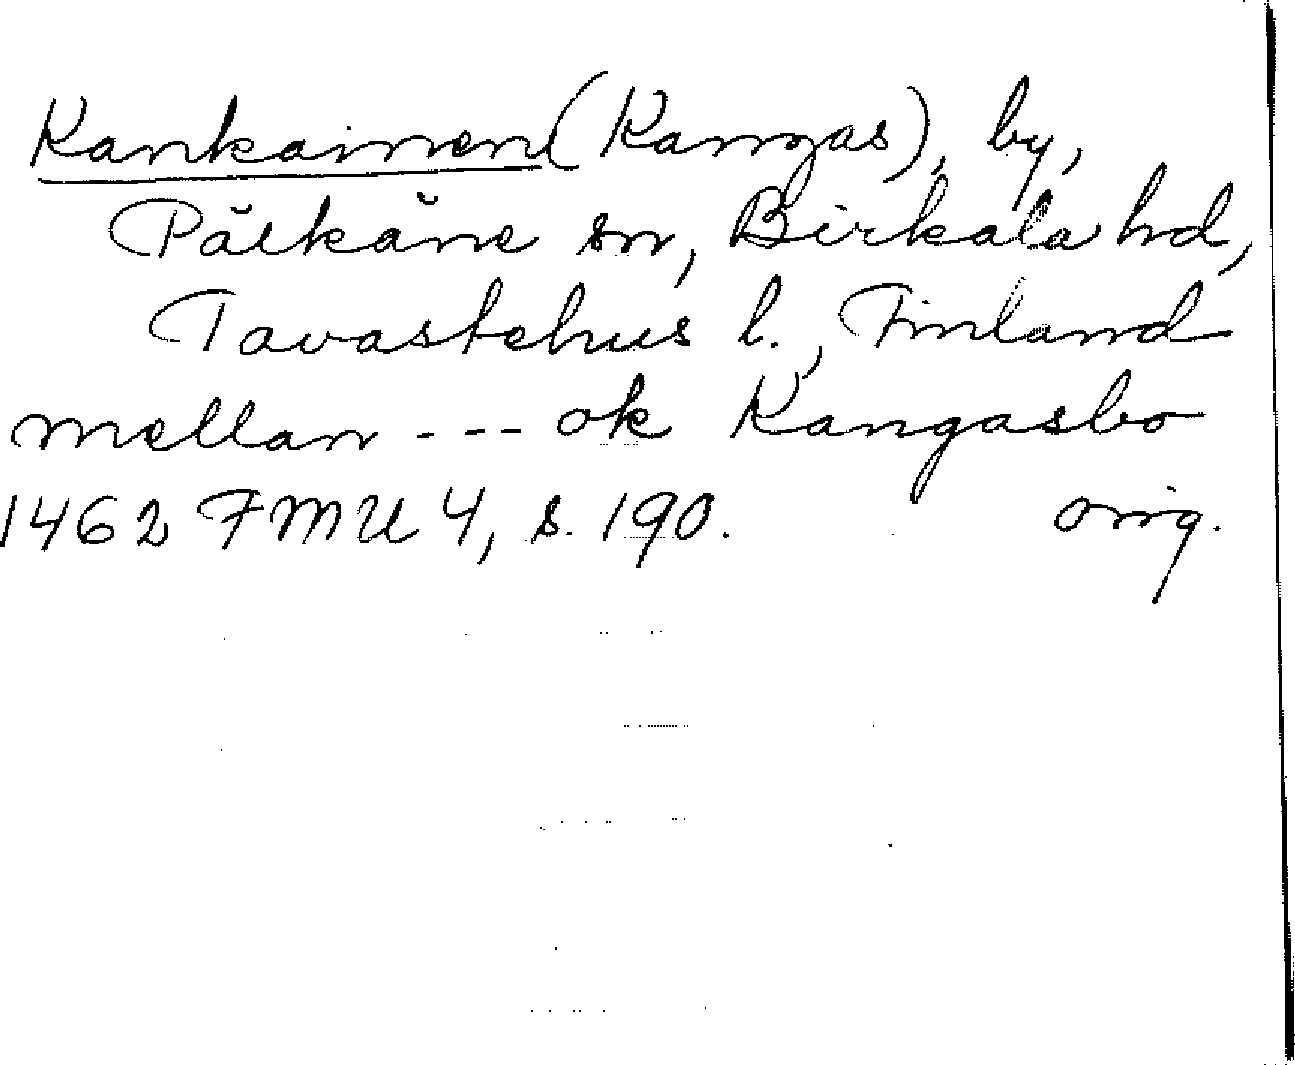 Kankainen (Kangas), by,
Pälkäne sn, Birkala hd,
Tavastehus l., Finland
mellan - - - ok Kangasbo
1462 FMU 4, s. 190. orig.